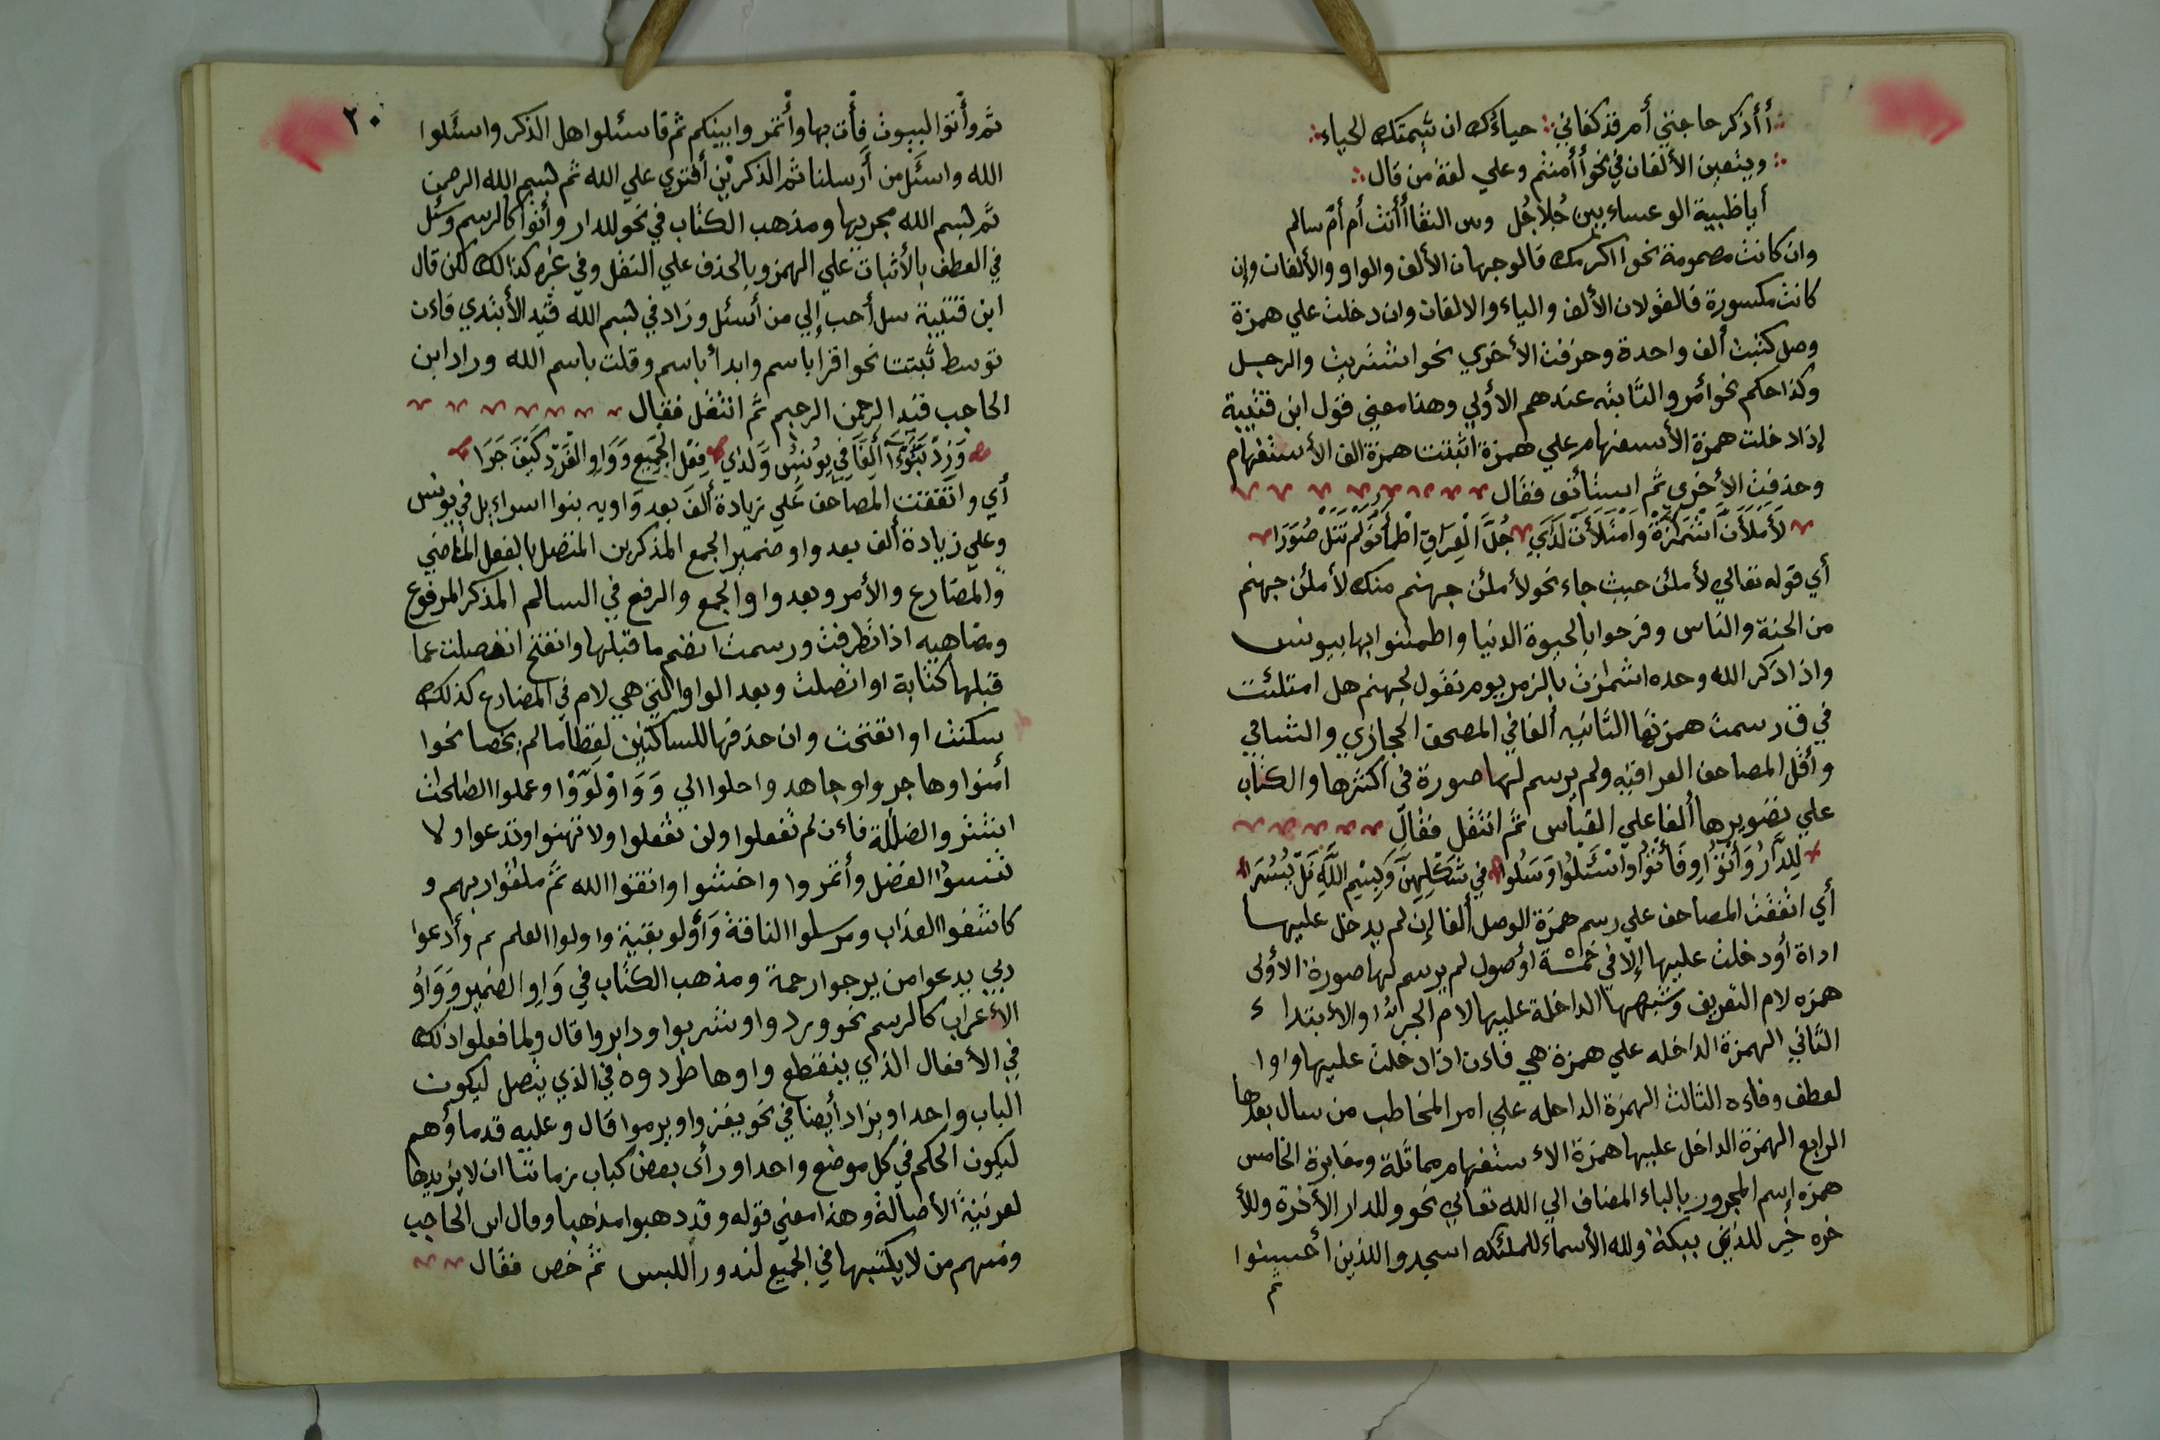 أأذكر حاجتي أم قد كفاني حياءك ان شيمتك الحياء
ويتعين الألفان في نحو أأمنتم وعلي لغة من قال
أيا ظبية الوعساء بين جُلاجُل وبين النقا أأنت أم أم سالم
وان كانت مضمومة نحو أاكرمك فالوجهان الألف والواو والألفان وإن
كانت مكسورة فالقولان الألف والياء والالفان وان دخلت علي همزة
وصل كتبت ألف واحدة وحزفت الأخري نحو اشتريت والرجل
وكذا حكم نحو أئمر والثانيه عندهم الأولي وهذا معني قول ابن قتيبة
إذا دخلت همزة الأستفهام علي همزة اثبتت همزة الف الأستفهام
وحذفت الأخري ثم استأنف فقال
لَأَمْلَأَنَّ اشْمَأَزَّتْ وَامْتَلَأَتْ لَدَيَ جُلَّ الْعِرَاقِ اطْمَأَنُّوا لَمْ تَنَلْ صُوَرَا
أي قوله تعالي لأملئن حيث جاء نحو لأملئن جهنم منك لأملئن جهنم
من الجنة والناس وفرحوا بالحيوة الدنيا واطمئنوا بها بيونس
واذا ذكر الله وحده اشمازت بالزمر يوم نقول لجهنم هل امتلئت
في ق رسمت همزتها الثانيه ألفا في المصحف الحجازي والشامي
وأقل المصاحف العراقيه ولم يرسم لها صورة في أكثرها والكتاب
علي تصويرها ألفا علي القياس ثم انتقل فقال
لِلدَّارُ وَأْتُوا وَفَأْتُوا وَاسْئَلُوا وَسَلُوا في شَكْلِهِنَّ وَبِسْمِ اللَّهِ نَلْ يُسُرَا
أي اتفقت المصاحف علي رسم همزة الوصل ألفا إن لم يدخل عليها
اداة أو دخلت عليها إلا في خمسة أوصول لم يرسم لها صورة الأولى
همزه لام التعريف وشبهها الداخلة عليها لام الجر او الأبتداء
الثاني الهمزة الداخله علي همزة هي فاءن اذا دخلت عليها واو
لعطف وفاءه الثالث الهمزة الداخله علي امر المخاطب من سال بعدها
الرابع الهمزة الداخل عليها همزة الاستفهام مماثلة ومغايرة الخامس
همزه إسم المجرور بالباء المضاف الي الله تعالي نحو وللدار الأخرة وللأ
خره خير للذي ببكة ولله الأسماء للملئكه اسجدوا للذين أحسنوا
ثم
٣٠
ثم وأتوا البيوت فأت بها وأتمروا بينكم ثم فاسئلوا هل الذكر واسئلوا
الله واسئل من أرسلنا ثم الذكرين أفتري علي الله ثم بسم الله الرحمن
ثم بسم الله مجريها ومذهب الكتاب في نحو للدار وأتوا كالرسم وسئل
في العطف بالأثبات علي الهمز وبالحذف علي النقل وفي غيره كذالك لكن قال
ابن قتيبة سل أحب إلي من أسئل وزاد في بسم الله قيد الأبتدي فاءن
توسط ثبتت نحو اقرا باسم وابدأ باسم وقلت باسم الله وزاد ابن
الحاجب قيد الرحمن الرحيم ثم انتقل فقال
وَزِدْ بَنُوءآ أَلِفًا فِي يُونُسٍ وَلَدَي فِعْلِ الْجَمِيعِ وَوَاوِ الْفَرْدِ كَيْفَ جَرَا
أي واتفقت المصاحف علي زيادة ألف بعد واويه بنوا اسراءيل في يونس
وعلي زيادة ألف بعد واو ضمير الجمع المذكرين المتصل بالفعل الماضي
والمضارع والأمر وبعد واو الجمع والرفع في السالم المذكر المرفوع
ومضاهيه اذا تطرفت ورسمت انضم ما قبلها وانفتح انفصلت عما
قبلها كتابة او اتصلت وبعد الواو التي هي لام في المضارع كذلك
سكنت او انفتحت وان حذفها للساكنين لفظا مالم يخصا نحوا
أمنوا وهاجروا وجاهد واحلوا الي وَوَاوْ لَوَّوْا وعملوا الصلحت
اشتروا الضللة فاءن لم تفعلوا ولن تفعلوا ولا تهنوا وتدعوا ولا
تنسوا الفضل وأتمروا واخشوا واتقوا الله ثم ملقوا ربهم و
كاشفوا العذاب ومرسلوا الناقة وَأولو بقية واولوا العلم ثم وأدعوا
ربي يدعوا من يرجوا رحمة ومذهب الكتاب في وَاوِ الضمير وَوَاوُ
الأعراب كالرسم نحو وردوا وشربوا ودابروا قال ولما فعلوا ذلك
في الأفعال الذي ينقطع واوها طردوه في الذي يتصل ليكون
الباب واحدا ويزاد أيضا في نحو يغزوا ويرموا قال وعليه قدماؤهم
ليكون الحكم في كل موضع واحدا ورأى بعض كباب زماننا ان لا يزيدها
لعرنية الأصالة وهذا معني قوله وقد ذهبوا مذهبا وقال ابن الحاجب
ومنهم من لا يكتبها في الجميع لندور اللبس ثم خص فقال